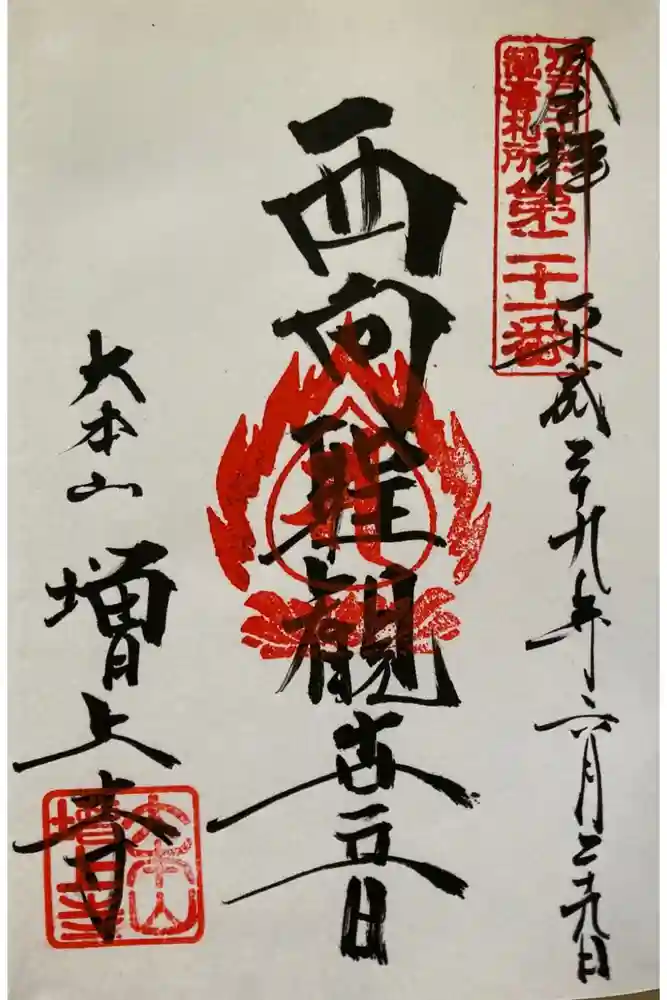 奉拝
平成二十九年六月二十九日
観音札所
第二十一番
西向聖観世音
大本山
増上寺
大本山
増上寺